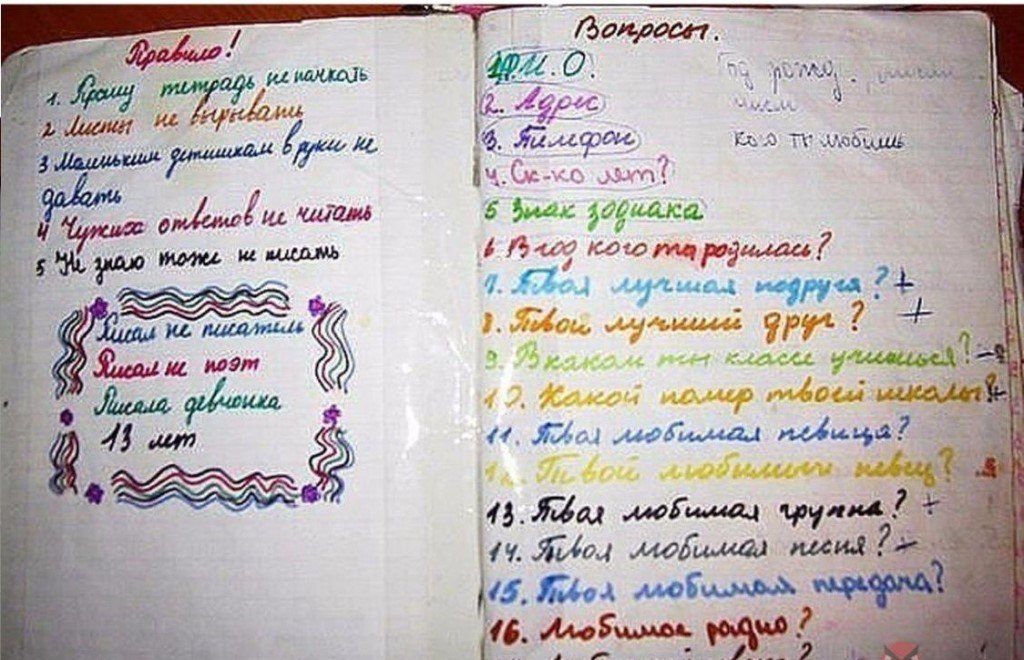 Правило!
1. Прошу тетрадь не пачкать
2 Листы не вырывать
3 Маленьким детишкам в руки не
давать
4 Чужих ответов не читать
5 Не знаю тоже не писать
Писал не писатель
Писал не поэт
Писала девчонка
13 лет
Вопросы.
1. Ф.И.О.
2. Адрес
3. Тилефон
4. Ск-ко лет?
5 Знак зодиака
6 В год кого ты розилась?
7. Твоя лучшая подруга? +
8. Твой лучший друг? +
9. В каком ты классе учишься?
10. Какой номер твоей школы? +
11. Твоя любимая певица?
12 Твой любимый певец?
13. Твоя любимая группа? +
14. Твоя любимая песня?
15. Твоя любимая передача?
16. Любимое радио?
Год рожд.
кого ты любишь